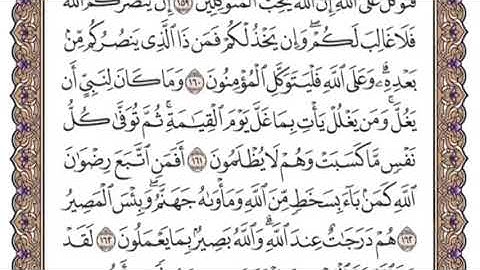 فَتَوَكَّلْ عَلَى ٱللَّهِ إِنَّ ٱللَّهَ يُحِبُّ ٱلْمُتَوَكِّلِينَ ١٥٩ إِن يَنصُرْكُمُ ٱللَّهُ
فَلَا غَالِبَ لَكُمْ وَإِن يَخْذُلْكُمْ فَمَن ذَا ٱلَّذِى يَنصُرُكُم مِّنۢ
بَعْدِهِۦ وَعَلَى ٱللَّهِ فَلْيَتَوَكَّلِ ٱلْمُؤْمِنُونَ ١٦٠ وَمَا كَانَ لِنَبِىٍّ أَن
يَغُلَّ وَمَن يَغْلُلْ يَأْتِ بِمَا غَلَّ يَوْمَ ٱلْقِيَٰمَةِ ثُمَّ تُوَفَّىٰ كُلُّ
نَفْسٍ مَّا كَسَبَتْ وَهُمْ لَا يُظْلَمُونَ ١٦١ أَفَمَنِ ٱتَّبَعَ رِضْوَٰنَ
ٱللَّهِ كَمَنۢ بَآءَ بِسَخَطٍ مِّنَ ٱللَّهِ وَمَأْوَىٰهُ جَهَنَّمُ وَبِئْسَ ٱلْمَصِيرُ
١٦٢ هُمْ دَرَجَٰتٌ عِندَ ٱللَّهِ وَٱللَّهُ بَصِيرٌۢ بِمَا يَعْمَلُونَ ١٦٣ لَقَدْ